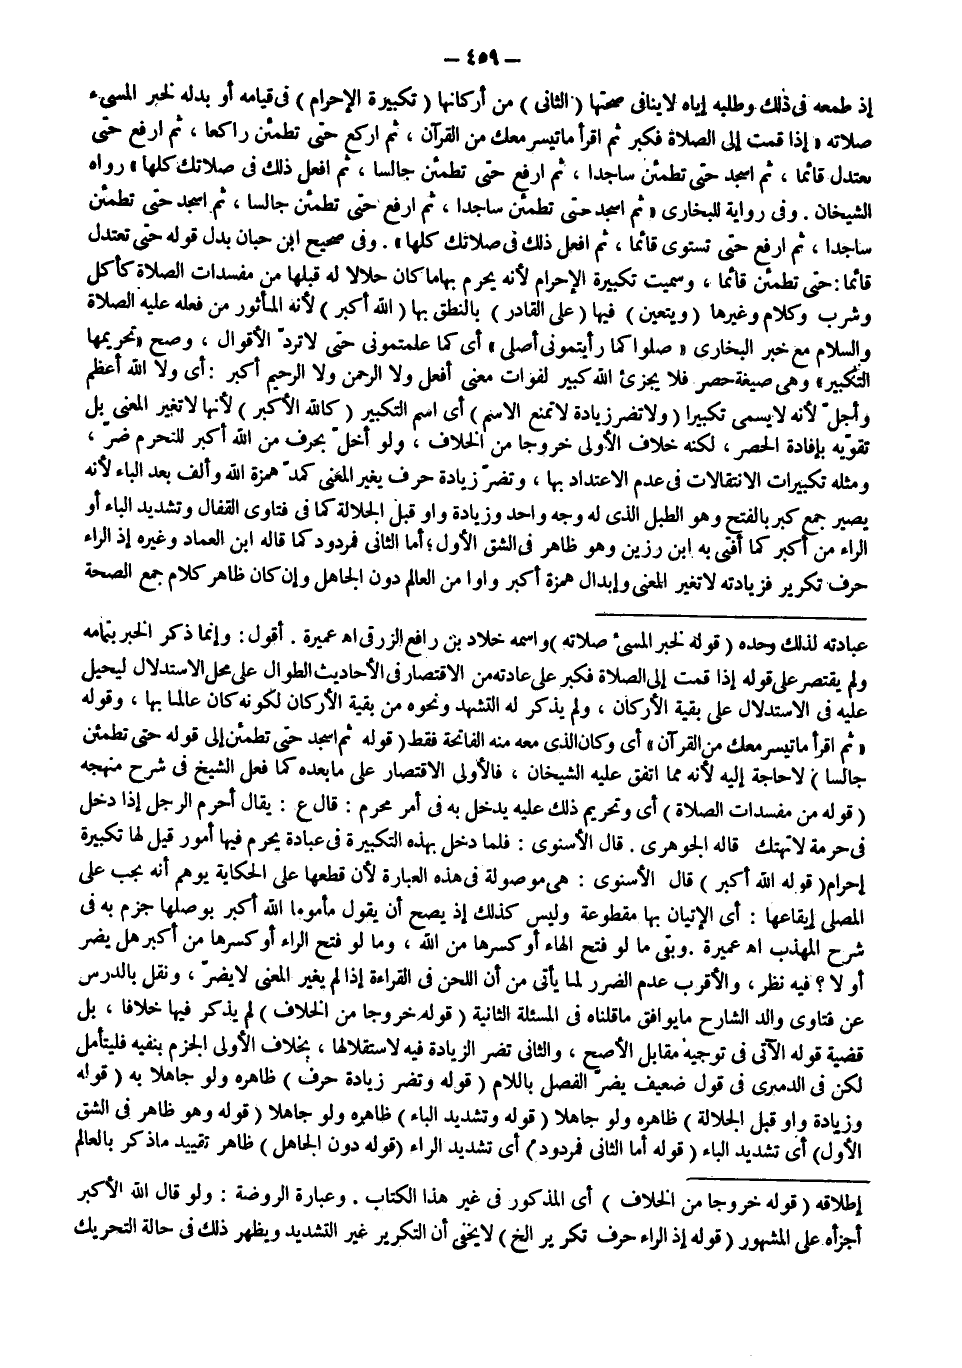 — ٤٥٩ —
إذ طمعه فى ذلك وطلبه إياه لاينافى صحتها ( الثانى ) من أركانها ( تكبيرة الإحرام ) فى قيامه أو بدله لخبر المسىء
صلاته « إذا قمت إلى الصلاة فكبر ثم اقرأ ماتيسر معك من القرآن ، ثم اركع حتى تطمئن راكعا ، ثم ارفع حتى
تعتدل قائما ، ثم اسجد حتى تطمئن ساجدا ، ثم ارفع حتى تطمئن جالسا ، ثم افعل ذلك فى صلاتك كلها » رواه
الشيخان . وفى رواية للبخارى « ثم اسجد حتى تطمئن ساجدا ، ثم ارفع حتى تطمئن جالسا ، ثم اسجد حتى تطمئن
ساجدا ، ثم ارفع حتى تستوى قائما ، ثم افعل ذلك فى صلاتك كلها » . وفى صحيح ابن حبان بدل قوله حتى تعتدل
قائما : حتى تطمئن قائما ، وسميت تكبيرة الإحرام لأنه يحرم بهاما كان حلالا له قبلها من مفسدات الصلاة كأكل
وشرب وكلام وغيرها ( ويتعين ) فيها ( على القادر ) بالنطق بها ( الله أكبر ) لأنه المأثور من فعله عليه الصلاة
والسلام مع خبر البخارى « صلوا كما رأيتمونى أصلى » أى كما علمتمونى حتى لاتردّ الأقوال ، وصح « تحريمها
التكبير » وهى صيغة حصر فلا يجزئ الله كبير لفوات معنى أفعل ولا الرحمن ولا الرحيم أكبر : أى ولا الله أعظم
وأجلّ لأنه لايسمى تكبيرا ( ولاتضر زيادة لاتمنع الاسم ) أى اسم التكبير ( كالله الأكبر ) لأنها لاتغير المعنى بل
تقوّيه بإفادة الحصر ، لكنه خلاف الأولى خروجا من الخلاف ، ولو أخلّ بحرف من الله أكبر للتحرم ضرّ ،
ومثله تكبيرات الانتقالات فى عدم الاعتداد بها ، وتضرّ زيادة حرف يغير المعنى كمدّ همزة الله وألف بعد الباء لأنه
يصير جمع كبر بالفتح وهو الطبل الذى له وجه واحد وزيادة واو قبل الجلالة كما فى فتاوى القفال وتشديد الباء أو
الراء من أكبر كما أفتى به ابن رزين وهو ظاهر فى الشق الأول ؛ أما الثانى فمردود كما قاله ابن العماد وغيره إذ الراء
حرف تكرير فزيادته لاتغير المعنى وإبدال همزة أكبر واوا من العالم دون الجاهل وإن كان ظاهر كلام جمع الصحة
عبادته لذلك وحده ( قوله لخبر المسىء صلاته ) واسمه خلاد بن رافع الزرقى اه عميرة . أقول : وإنما ذكر الخبر بتمامه
ولم يقتصر على قوله إذا قمت إلى الصلاة فكبر على عادته من الاقتصار فى الأحاديث الطوال على محل الاستدلال ليحيل
عليه فى الاستدلال على بقية الأركان ، ولم يذكر له التشهد ونحوه من بقية الأركان لكونه كان عالما بها ، وقوله
« ثم اقرأ ماتيسر معك من القرآن » أى وكان الذى معه منه الفاتحة فقط ( قوله ثم اسجد حتى تطمئن إلى قوله حتى تطمئن
جالسا ) لاحاجة إليه لأنه مما اتفق عليه الشيخان ، فالأولى الاقتصار على مابعده كما فعل الشيخ فى شرح منهجه
( قوله من مفسدات الصلاة ) أى وتحريم ذلك عليه يدخل به فى أمر محرم : قال ع : يقال أحرم الرجل إذا دخل
فى حرمة لاتهتك قاله الجوهرى . قال الأسنوى : فلما دخل بهذه التكبيرة فى عبادة يحرم فيها أمور قيل لها تكبيرة
إحرام ( قوله الله أكبر ) قال الأسنوى : هى موصولة فى هذه العبارة لأن قطعها على الحكاية يوهم أنه يجب على
المصلى إيقاعها : أى الإتيان بها مقطوعة وليس كذلك إذ يصح أن يقول مأموما الله أكبر بوصلها جزم به فى
شرح المهذب اه عميرة . وبقى ما لو فتح الهاء أو كسرها من الله ، وما لو فتح الراء أو كسرها من أكبر هل يضر
أو لا ؟ فيه نظر ، والأقرب عدم الضرر لما يأتى من أن اللحن فى القراءة إذا لم يغير المعنى لايضرّ ، ونقل بالدرس
عن فتاوى والد الشارح مايوافق ماقلناه فى المسئلة الثانية ( قوله خروجا من الخلاف ) لم يذكر فيها خلافا ، بل
قضية قوله الآتى فى توجيه مقابل الأصح ، والثانى تضر الزيادة فيه لاستقلالها ، بخلاف الأولى الجزم بنفيه فليتأمل
لكن فى الدميرى فى قول ضعيف يضرّ الفصل باللام ( قوله وتضر زيادة حرف ) ظاهره ولو جاهلا به ( قوله
وزيادة واو قبل الجلالة ) ظاهره ولو جاهلا ( قوله وتشديد الباء ) ظاهره ولو جاهلا ( قوله وهو ظاهر فى الشق
الأول ) أى تشديد الباء ( قوله أما الثانى فمردود ) أى تشديد الراء ( قوله دون الجاهل ) ظاهر تقييد ماذكر بالعالم
إطلاقه ( قوله خروجا من الخلاف ) أى المذكور فى غير هذا الكتاب . وعبارة الروضة : ولو قال الله الأكبر
أجزأه على المشهور ( قوله إذ الراء حرف تكرير الخ ) لايخفى أن التكرير غير التشديد ويظهر ذلك فى حالة التحريك